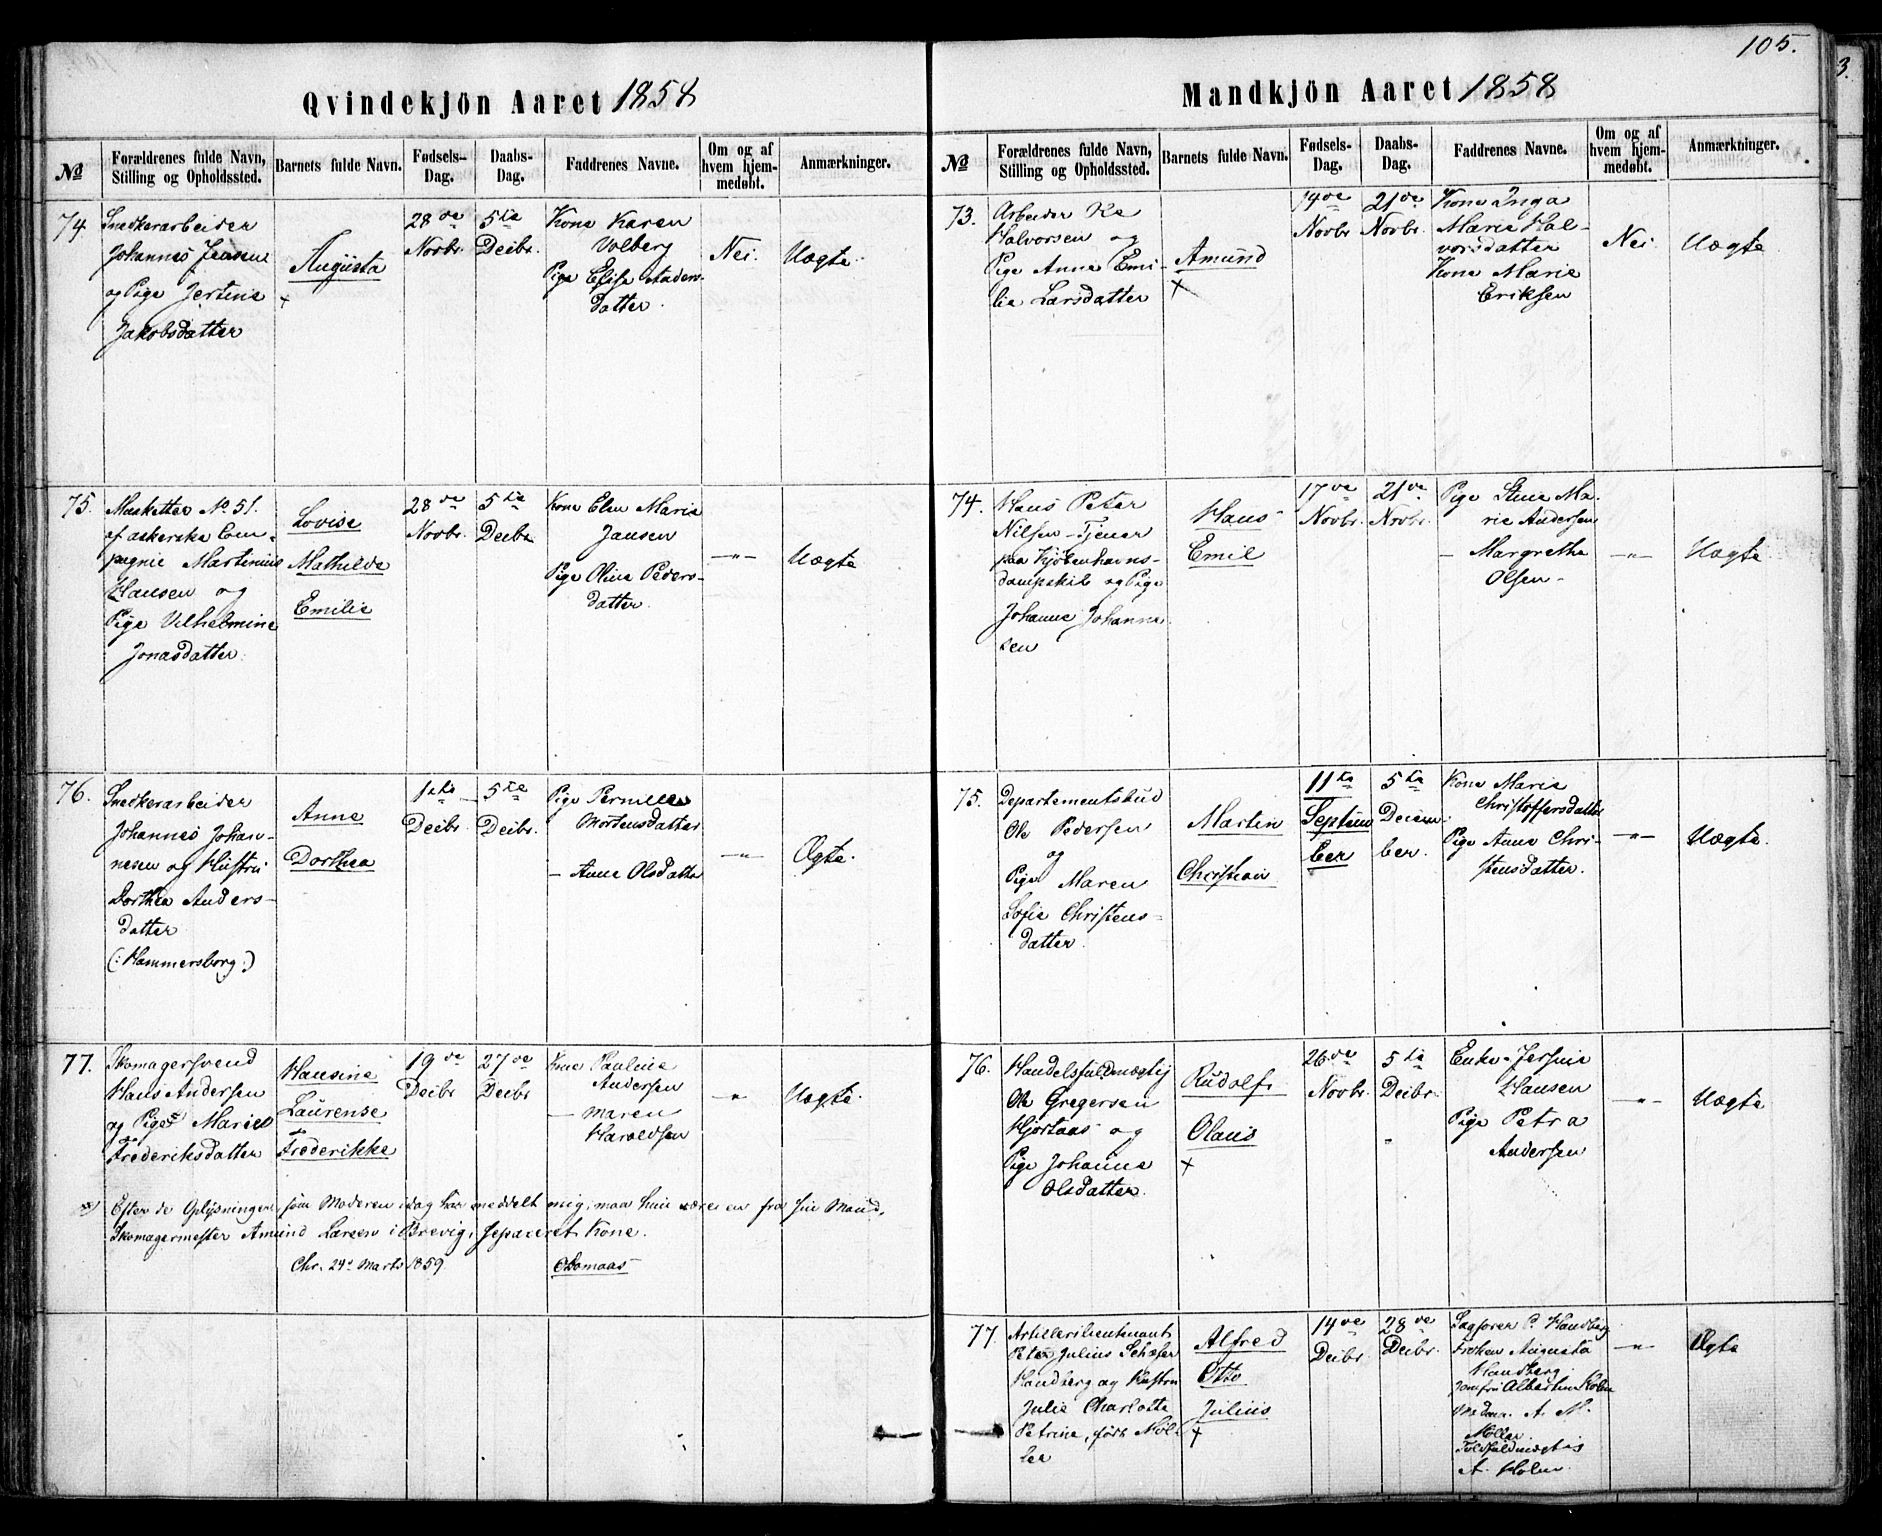 105.
3.
Qvindekjön Aaret 1858
№
Forældrenes fulde Navn, Stilling og Opholdssted.
Barnets fulde Navn.
Fødsels-Dag.
Daabs-Dag.
Faddrenes Navne.
Om og af hvem hjemmedøbt.
Anmærkninger.
74.
Snedkerarbeider
Johannes Jensen
og Pige Jertine
Jakobsdatter
Augusta
+
28de
Novbr.
5te
Decbr.
Kone Karen
Volberg
Pige Elise Anders-
datter.
Nei.
Uægte.
75.
Musketter No 51.
af askerske Com-
pagnie Martinius
Hansen og
Pige Vilhelmine
Jonasdatter.
Lovise
Mathilde
Emilie
28de
Novbr.
5te
Decbr.
Kone Elen Marie
Jansen
Pige Oline Peders-
datter.
—„—
Uægte
76.
Snedkerarbeider
Johannes Johan-
nesen og Hustru
Dorthea Anders-
datter
(: Hammersborg :)
Anne
Dorthea
1ste
Decbr.
5te
Decbr.
Pige Pernille
Mortensdatter
— Anne Olsdatter
—„—
Ægte.
77.
Skomagersvend
Hans Andersen
og Pige Marie
Frederiksdatter
Hansine
Laurense
Frederikke
19de
Decbr
27de
Decbr
Kone Pauline
Andersen
— Maren
Haroldsen
„
Uægte.
*) Efter de Oplysninger, som Moderen idag har meddelt mig, maa hun være en fra sin Mand,
Skomagermester Amund Larsen i Brevig, separeret Kone.
Chr. 24de Marts 1859.
Mandkjön Aaret 1858
№
Forældrenes fulde Navn, Stilling og Opholdssted.
Barnets fulde Navn.
Fødsels-Dag.
Daabs-Dag.
Faddrenes Navne.
Om og af hvem hjemmedøbt.
Anmærkninger.
73.
Arbeider
Halvorsen og
Pige Anne Emi-
lie Larsdatter
Amund
+
14de
Novbr
21de
Novbr.
Kone Inga
Marie Hal-
vorsdatter
Kone Marie
Eriksen
Nei.
Uægte
74.
Hans Peter
Nilsen - Tjener
paa Kjøbenhavns-
dampskib og Pige
Johanne Johanne
sen
Hans
Emil
17de
Novbr.
21de
Novbr.
Pige Stine Ma-
rie Andersen
— Margrethe
Olsen -
—„—
Uægte
75.
Departementsbud
Ole Pedersen
og
Pige Maren
Sofie Christens-
datter.
Martin
Christian
11te
Septem
ber
5te
Decem
ber.
Kone Marie
Christoffersdatter
Pige Anne Chri-
stensdatter.
—„—
Uægte.
76.
Handelsfuldmægtig
Ole Gregersen
Hjortaas og
Pige Johanne
Olsdatter.
Rudolf
Olaus
+
26de
Novbr.
5te
Decbr.
Enke
Hansen
Pige Petra
Andersen
—„—
Uægte
77.
Artillerilieutenant
Peter Julius Schæfer
Handberg og Hustru
Julie Charlotte
Petrine, født Møl
ler
Alfred
Otto
Julius
+
14de
Decbr.
28de
Decbr.
Sagfører P. Handberg
Frøken Augusta
Handberg
Jomfru Albertine Holm
A. M.
Møller.
Toldfuldmægtig
A. Holm.
—„—
Ægte